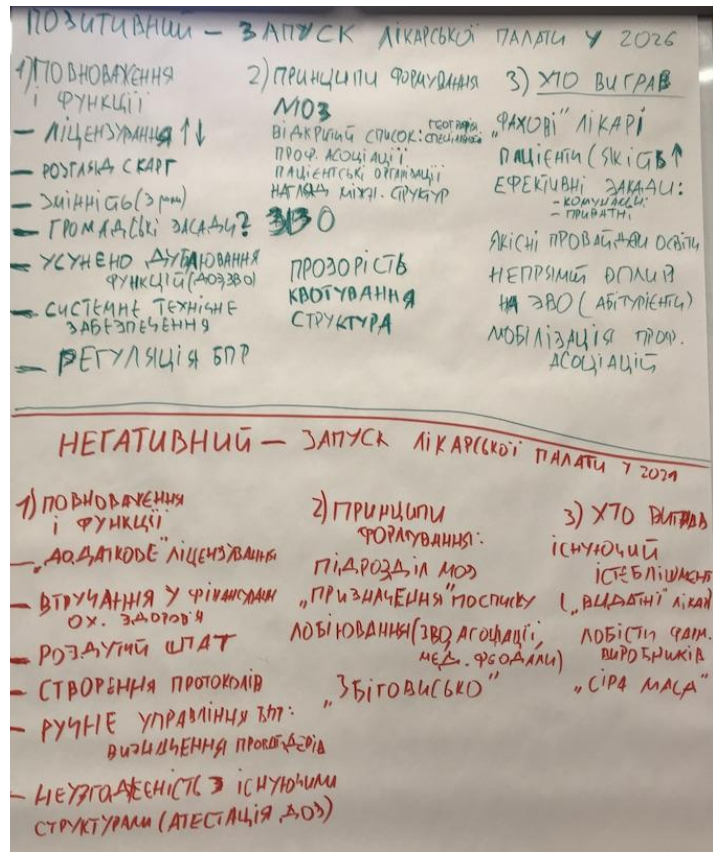 ПОЗИТИВНИЙ – ЗАПУСК ЛІКАРСЬКОЇ ПАЛАТИ У 2026
1) ПОВНОВАЖЕННЯ
І ФУНКЦІЇ
– ЛІЦЕНЗУВАННЯ ↑↓
– РОЗГЛЯД СКАРГ
– ЗМІННІСТЬ (3 роки)
– ГРОМАДСЬКІ ЗАСАДИ?
– УСУНЕНО ДУБЛЮВАННЯ
ФУНКЦІЙ (ДОЗ, ЗВО)
– СИСТЕМНЕ ТЕХНІЧНЕ
ЗАБЕЗПЕЧЕННЯ
– РЕГУЛЯЦІЯ БПР
2) ПРИНЦИПИ ФОРМУВАННЯ
МОЗ
ВІДКРИТИЙ СПИСОК: ГЕОГРАФІЯ
ПРОФ. АСОЦІАЦІЇ
ПАЦІЄНТСЬКІ ОРГАНІЗАЦІЇ
НАГЛЯД МІЖН. СТРУКТУР
ЗВО
ПРОЗОРІСТЬ
КВОТУВАННЯ
СТРУКТУРА
3) ХТО ВИГРАВ
„ФАХОВІ" ЛІКАРІ
ПАЦІЄНТИ (ЯКІСТЬ ↑
ЕФЕКТИВНІ ЗАКЛАДИ:
– КОМУНАЛЬНІ
– ПРИВАТНІ
ЯКІСНІ ПРОВАЙДЕРИ ОСВІТИ
НЕПРЯМИЙ ВПЛИВ
НА ЗВО (АБІТУРІЄНТИ)
МОБІЛІЗАЦІЯ ПРОФ.
АСОЦІАЦІЙ
НЕГАТИВНИЙ – ЗАПУСК ЛІКАРСЬКОЇ ПАЛАТИ У
1) ПОВНОВАЖЕННЯ
І ФУНКЦІЇ
– „ДОДАТКОВЕ" ЛІЦЕНЗУВАННЯ
– ВТРУЧАННЯ У ФІНАНСУВАНН
ОХ. ЗДОРОВ'Я
– РОЗДУТИЙ ШТАТ
– СТВОРЕННЯ ПРОТОКОЛІВ
– РУЧНЕ УПРАВЛІННЯ БПР:
ВИЗНАЧЕННЯ ПРОВАЙДЕРІВ
– НЕУЗГОДЖЕНІСТЬ З ІСНУЮЧИМИ
СТРУКТУРАМИ (АТЕСТАЦІЯ ДОЗ)
2) ПРИНЦИПИ
ФОРМУВАННЯ:
ПІДРОЗДІЛ МОЗ
„ПРИЗНАЧЕННЯ" ПО СПИСКУ
ЛОБІЮВАННЯ (ЗВО, АСОЦІАЦІЇ,
МЕД. ФЕОДАЛИ)
„ЗБІГОВИСЬКО"
3) ХТО ВИГРАВ
ІСНУЮЧИЙ
ІСТЕБЛІШМЕНТ
(„ВИДАТНІ" ЛІКАРІ)
ЛОБІСТИ ФАРМ.
ВИРОБНИКІВ
„СІРА МАСА"